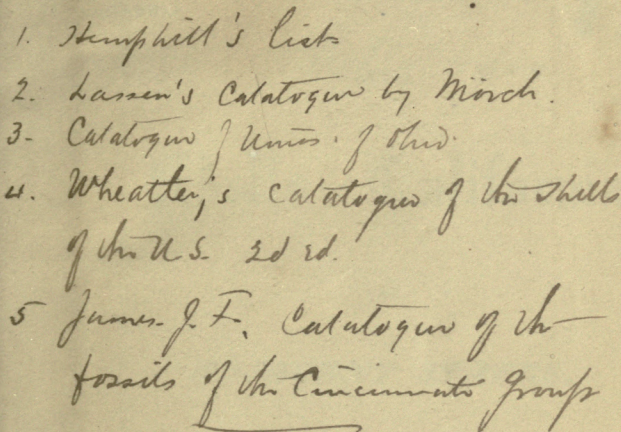 1. Hemphill's list
2. Lassen's Catalogue by Mörch.
3- Catalogue of Unios. of Ohio.
4. Wheatley's Catalogue of the Shells
of the U.S. 2d Ed.
5 James. J. F. Catalogue of the
fossils of the Cincinnati Group